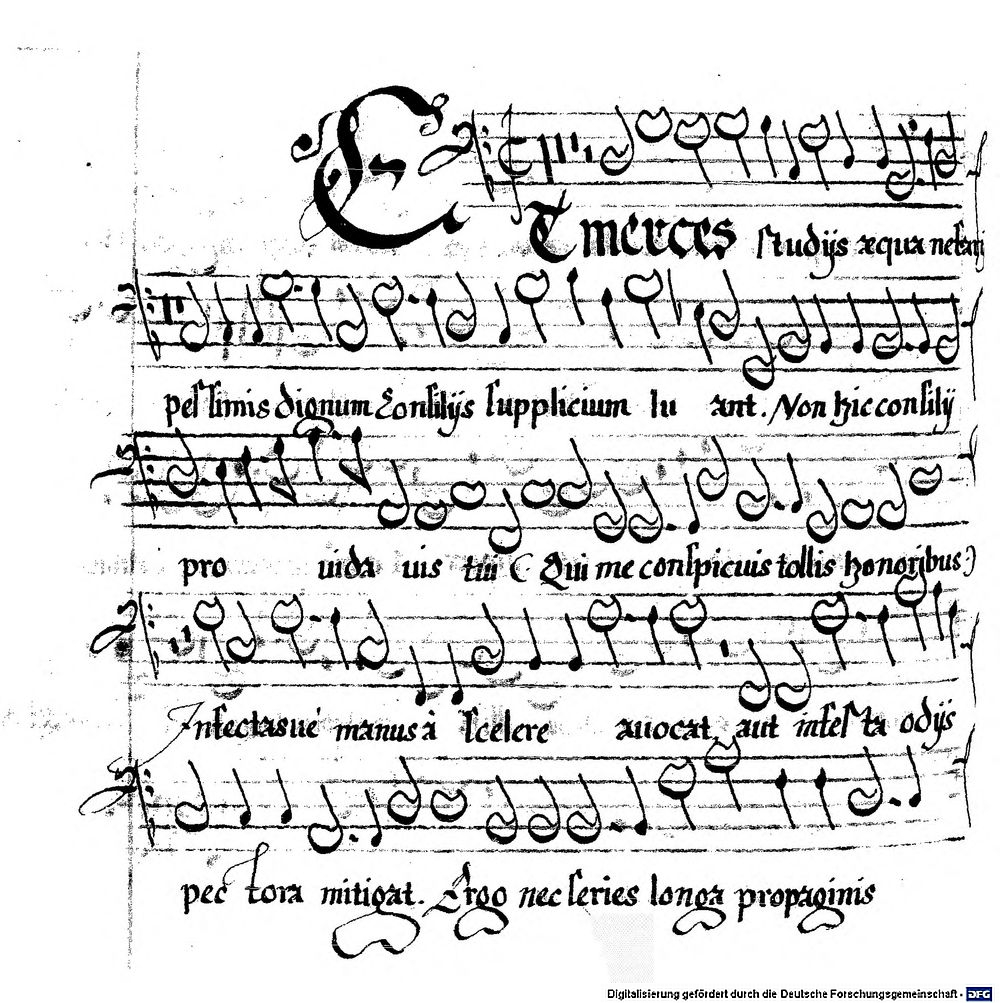 ET merces studijs æqua nefarij
pessimis dignum Consilijs supplicium lu ant. Non hic consilij
pro uida uis tui ( Qui me conspicuis tollis honoribus:)
Infectasué manus à scelere auocat, aut infesta odijs
pec tora mitigat. Ergo nec series longa propaginis
Digitalisierung gefördert durch die Deutsche Forschungsgemeinschaft - DFG